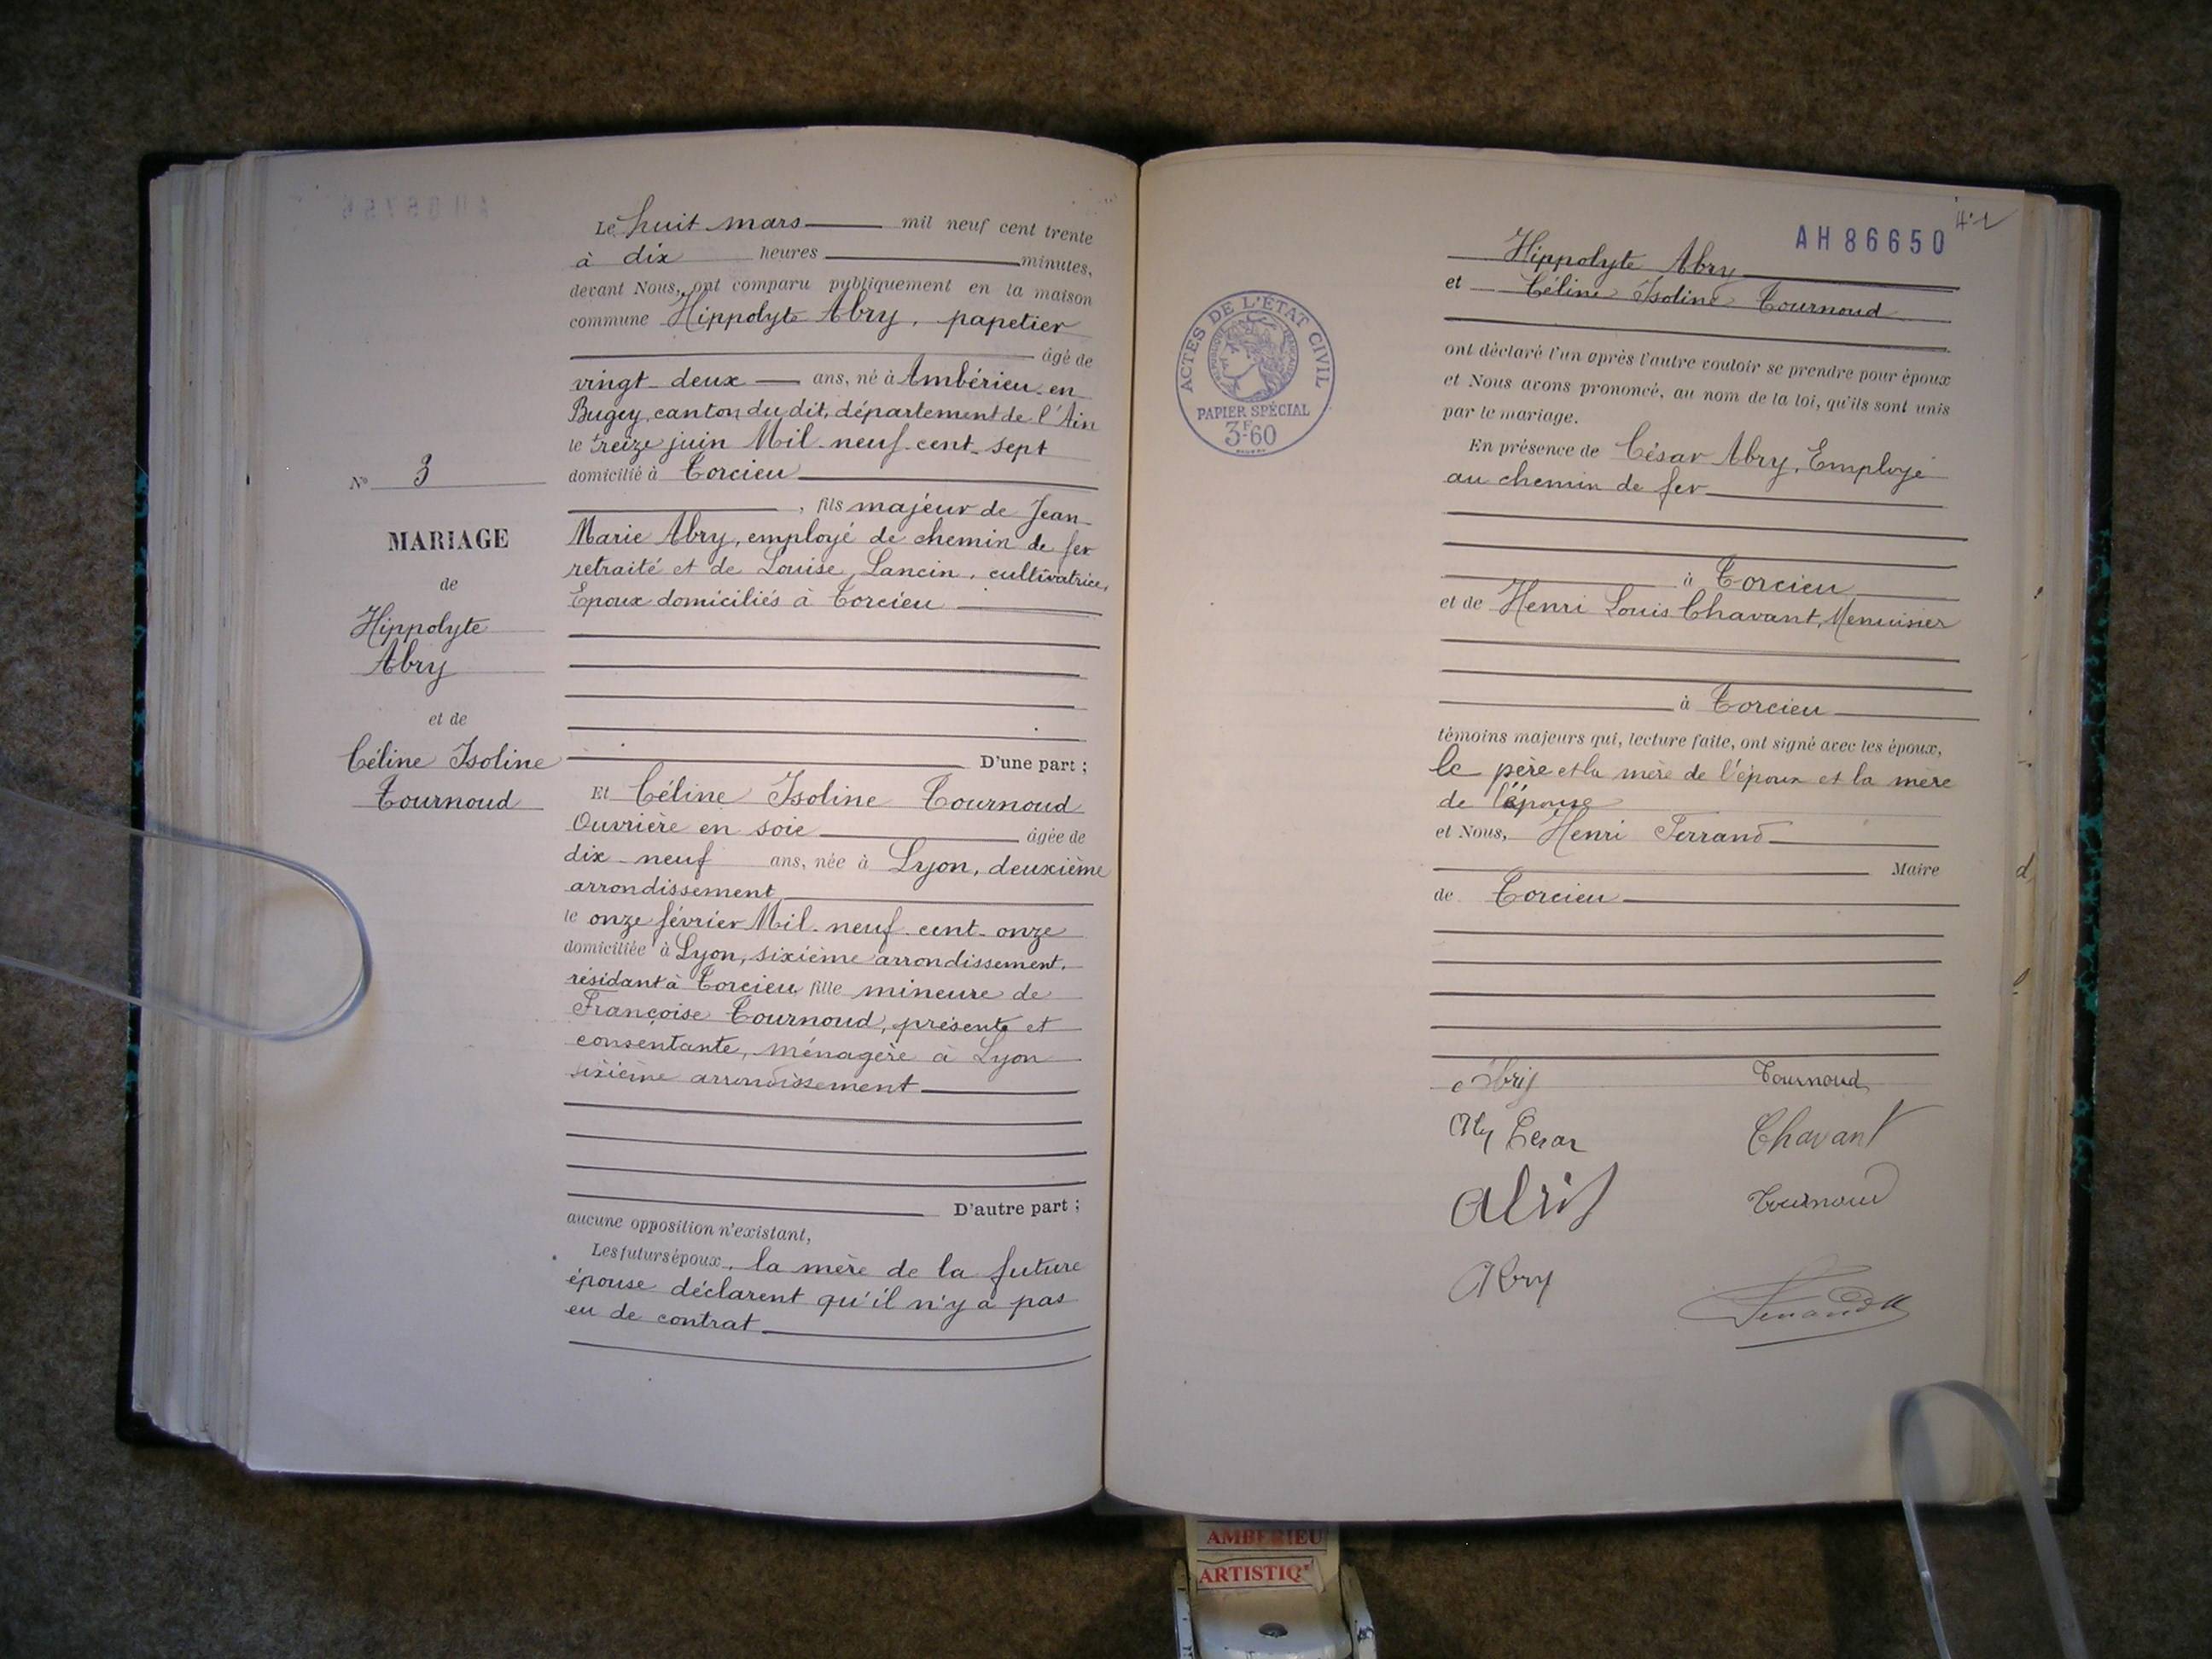 Le huit mars mil neuf cent trente
à dix heures minutes,
devant Nous, ont comparu publiquement en la maison
commune Hippolyte Abry, papetier
âgé de
vingt-deux ans, né à Ambérieu-en-
Bugey, canton du dit, département de l'Ain
le treize juin Mil-neuf-cent-sept
domicilié à Torcieu
, fils majeur de Jean-
Marie Abry, employé de chemin de fer
retraité et de Louise Lancin, cultivatrice,
Epoux domiciliés à Torcieu
D'une part ;
Et Céline Isoline Tournoud
Ouvrière en soie âgée de
dix-neuf ans, née à Lyon, deuxième
arrondissement
le onze février Mil-neuf-cent-onze
domiciliée à Lyon, sixième arrondissement,
résidant à Torcieu, fille mineure de
Françoise Tournoud, présente et
consentante, ménagère à Lyon
sixième arrondissement
D'autre part ;
aucune opposition n'existant,
Les futurs époux, la mère de la future
épouse déclarent qu'il n'y a pas
eu de contrat
N° 3
MARIAGE
de
Hippolyte
Abry
et de
Céline Isoline
Tournoud
AH 86650
Hippolyte Abry
et Céline Isoline Tournoud
ont déclaré l'un après l'autre vouloir se prendre pour époux
et Nous avons prononcé, au nom de la loi, qu'ils sont unis
par le mariage.
En présence de César Abry, Employé
au chemin de fer
à Torcieu
et de Henri Louis Chavant, Menuisier
à Torcieu
témoins majeurs qui, lecture faite, ont signé avec les époux,
le père et la mère de l'époux et la mère
de l'épouse
et Nous, Henri Ferrand
Maire
de Torcieu
Tournoud
Chavant
Tournoud
Abry
ACTES DE L'ÉTAT CIVIL
RÉPUBLIQUE FRANÇAISE
PAPIER SPÉCIAL
3F.60
AMBERIEU
ARTISTIQ